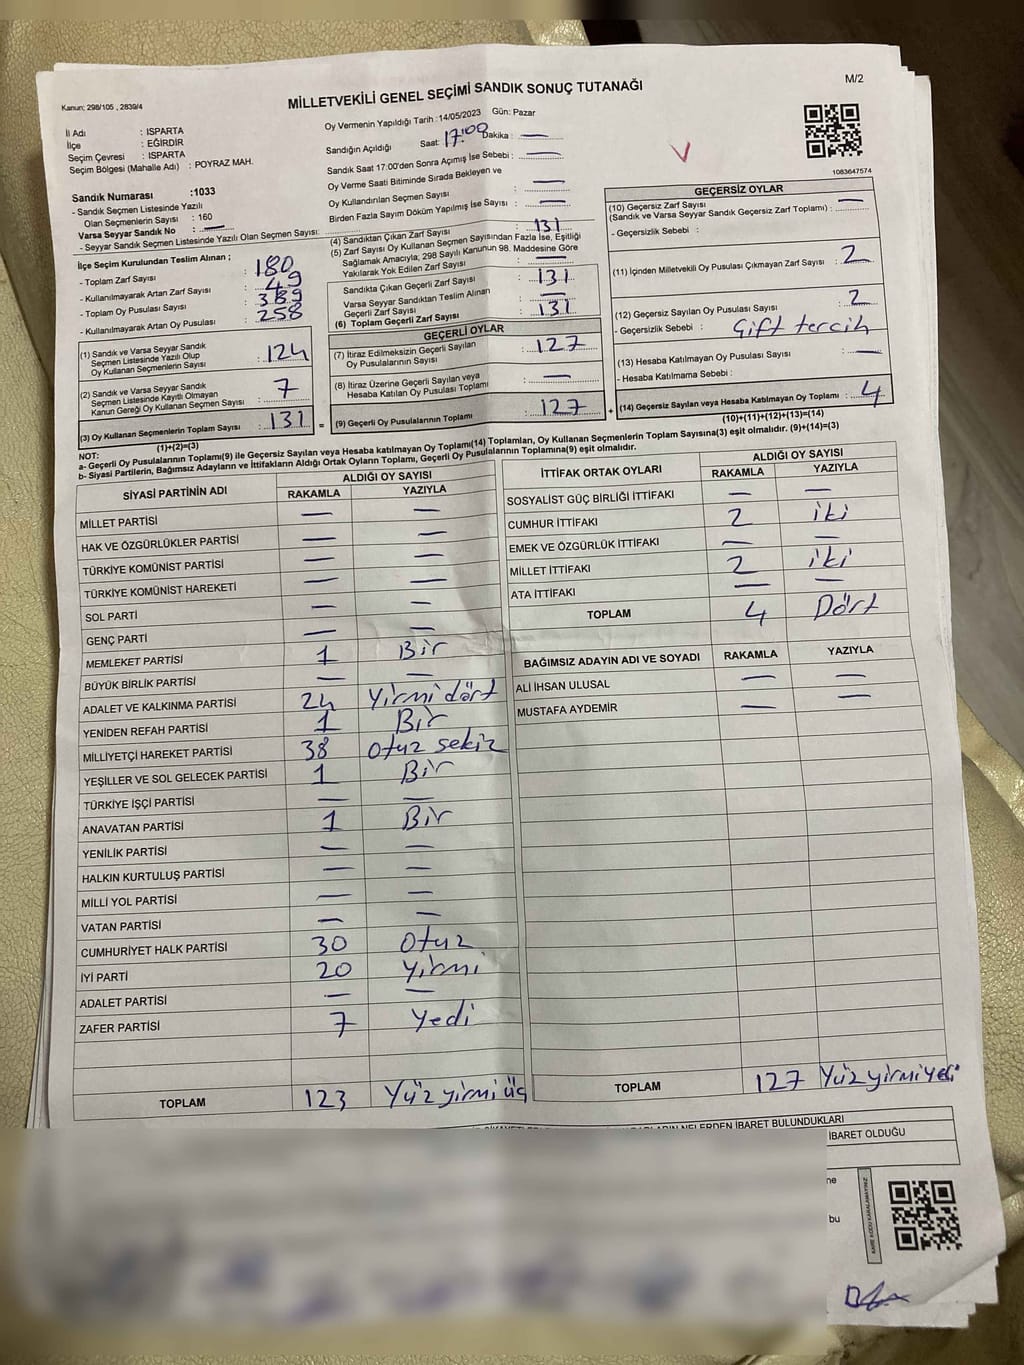 Kanun; 298/105 , 2839/4
MİLLETVEKİLİ GENEL SEÇİMİ SANDIK SONUÇ TUTANAĞI
M/2
İl Adı : ISPARTA
İlçe : EĞİRDİR
Seçim Çevresi : ISPARTA
Seçim Bölgesi (Mahalle Adı) : POYRAZ MAH.
Sandık Numarası :1033
- Sandık Seçmen Listesinde Yazılı
Olan Seçmenlerin Sayısı : 160
Varsa Seyyar Sandık No : —
- Seyyar Sandık Seçmen Listesinde Yazılı Olan Seçmen Sayısı:
Oy Vermenin Yapıldığı Tarih :14/05/2023 Gün: Pazar
Sandığın Açıldığı Saat: 17:00 Dakika : —
Sandık Saat 17:00'den Sonra Açımış İse Sebebi : —
Oy Verme Saati Bitiminde Sırada Bekleyen ve
Oy Kullandırılan Seçmen Sayısı : —
Birden Fazla Sayım Döküm Yapılmış İse Sayısı : —
1083647574
İlçe Seçim Kurulundan Teslim Alınan ;
- Toplam Zarf Sayısı : 180
- Kullanılmayarak Artan Zarf Sayısı : 49
- Toplam Oy Pusulası Sayısı : 389
- Kullanılmayarak Artan Oy Pusulası : 258
(1) Sandık ve Varsa Seyyar Sandık
Seçmen Listesinde Yazılı Olup
Oy Kullanan Seçmenlerin Sayısı : 124
(2) Sandık ve Varsa Seyyar Sandık
Seçmen Listesinde Kayıtlı Olmayan
Kanun Gereği Oy Kullanan Seçmen Sayısı : 7
(3) Oy Kullanan Seçmenlerin Toplam Sayısı : 131
(1)+(2)=(3)
(4) Sandıktan Çıkan Zarf Sayısı : 131
(5) Zarf Sayısı Oy Kullanan Seçmen Sayısından Fazla İse, Eşitliği
Sağlamak Amacıyla; 298 Sayılı Kanunun 98. Maddesine Göre
Yakılarak Yok Edilen Zarf Sayısı : —
Sandıkta Çıkan Geçerli Zarf Sayısı : 131
Varsa Seyyar Sandıktan Teslim Alınan
Geçerli Zarf Sayısı : —
(6) Toplam Geçerli Zarf Sayısı : 131
GEÇERLİ OYLAR
(7) İtiraz Edilmeksizin Geçerli Sayılan
Oy Pusulalarının Sayısı : 127
(8) İtiraz Üzerine Geçerli Sayılan veya
Hesaba Katılan Oy Pusulası Toplamı : —
= (9) Geçerli Oy Pusulalarının Toplamı : 127
GEÇERSİZ OYLAR
(10) Geçersiz Zarf Sayısı
(Sandık ve Varsa Seyyar Sandık Geçersiz Zarf Toplamı) : —
- Geçersizlik Sebebi :
(11) İçinden Milletvekili Oy Pusulası Çıkmayan Zarf Sayısı : 2
(12) Geçersiz Sayılan Oy Pusulası Sayısı : 2
- Geçersizlik Sebebi : Çift tercih
(13) Hesaba Katılmayan Oy Pusulası Sayısı : —
- Hesaba Katılmama Sebebi :
+ (14) Geçersiz Sayılan veya Hesaba Katılmayan Oy Toplamı : 4
(10)+(11)+(12)+(13)=(14)
NOT:
a- Geçerli Oy Pusulalarının Toplamı(9) ile Geçersiz Sayılan veya Hesaba katılmayan Oy Toplamı(14) Toplamları, Oy Kullanan Seçmenlerin Toplam Sayısına(3) eşit olmalıdır. (9)+(14)=(3)
b- Siyasi Partilerin, Bağımsız Adayların ve İttifakların Aldığı Ortak Oyların Toplamı, Geçerli Oy Pusulalarının Toplamına(9) eşit olmalıdır.
SİYASİ PARTİNİN ADI ALDIĞI OY SAYISI
RAKAMLA YAZIYLA
MİLLET PARTİSİ — —
HAK VE ÖZGÜRLÜKLER PARTİSİ — —
TÜRKİYE KOMÜNİST PARTİSİ — —
TÜRKİYE KOMÜNİST HAREKETİ — —
SOL PARTİ — —
GENÇ PARTİ — —
MEMLEKET PARTİSİ 1 Bir
BÜYÜK BİRLİK PARTİSİ — —
ADALET VE KALKINMA PARTİSİ 24 Yirmi dört
YENİDEN REFAH PARTİSİ 1 Bir
MİLLİYETÇİ HAREKET PARTİSİ 38 Otuz sekiz
YEŞİLLER VE SOL GELECEK PARTİSİ 1 Bir
TÜRKİYE İŞÇİ PARTİSİ — —
ANAVATAN PARTİSİ 1 Bir
YENİLİK PARTİSİ — —
HALKIN KURTULUŞ PARTİSİ — —
MİLLİ YOL PARTİSİ — —
VATAN PARTİSİ — —
CUMHURİYET HALK PARTİSİ 30 Otuz
İYİ PARTİ 20 Yirmi
ADALET PARTİSİ — —
ZAFER PARTİSİ 7 Yedi
TOPLAM 123 Yüz yirmi üç
İTTİFAK ORTAK OYLARI ALDIĞI OY SAYISI
RAKAMLA YAZIYLA
SOSYALİST GÜÇ BİRLİĞİ İTTİFAKI — —
CUMHUR İTTİFAKI 2 iki
EMEK VE ÖZGÜRLÜK İTTİFAKI — —
MİLLET İTTİFAKI 2 iki
ATA İTTİFAKI — —
TOPLAM 4 Dört
BAĞIMSIZ ADAYIN ADI VE SOYADI RAKAMLA YAZIYLA
ALİ İHSAN ULUSAL — —
MUSTAFA AYDEMİR — —
TOPLAM 127 Yüz yirmi yedi
NELERDEN İBARET BULUNDUKLARI
İBARET OLDUĞU
ne
bu